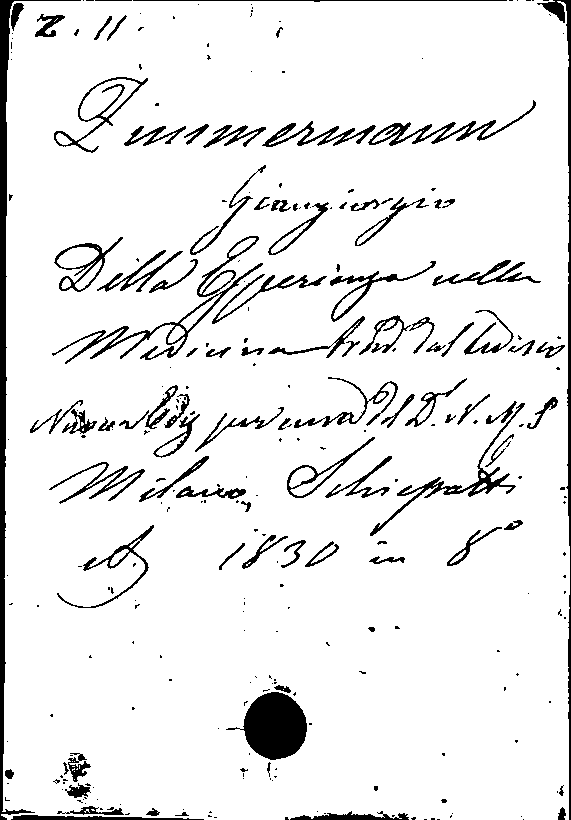 Z. 11.
Zimmermann
Giangiorgio
Della Esperienza nella
Medicina trad. dal tedesco
Nuova Ediz per cura del Dr. N. M. S
Milano, Schiepatti
A. 1830 in 8°